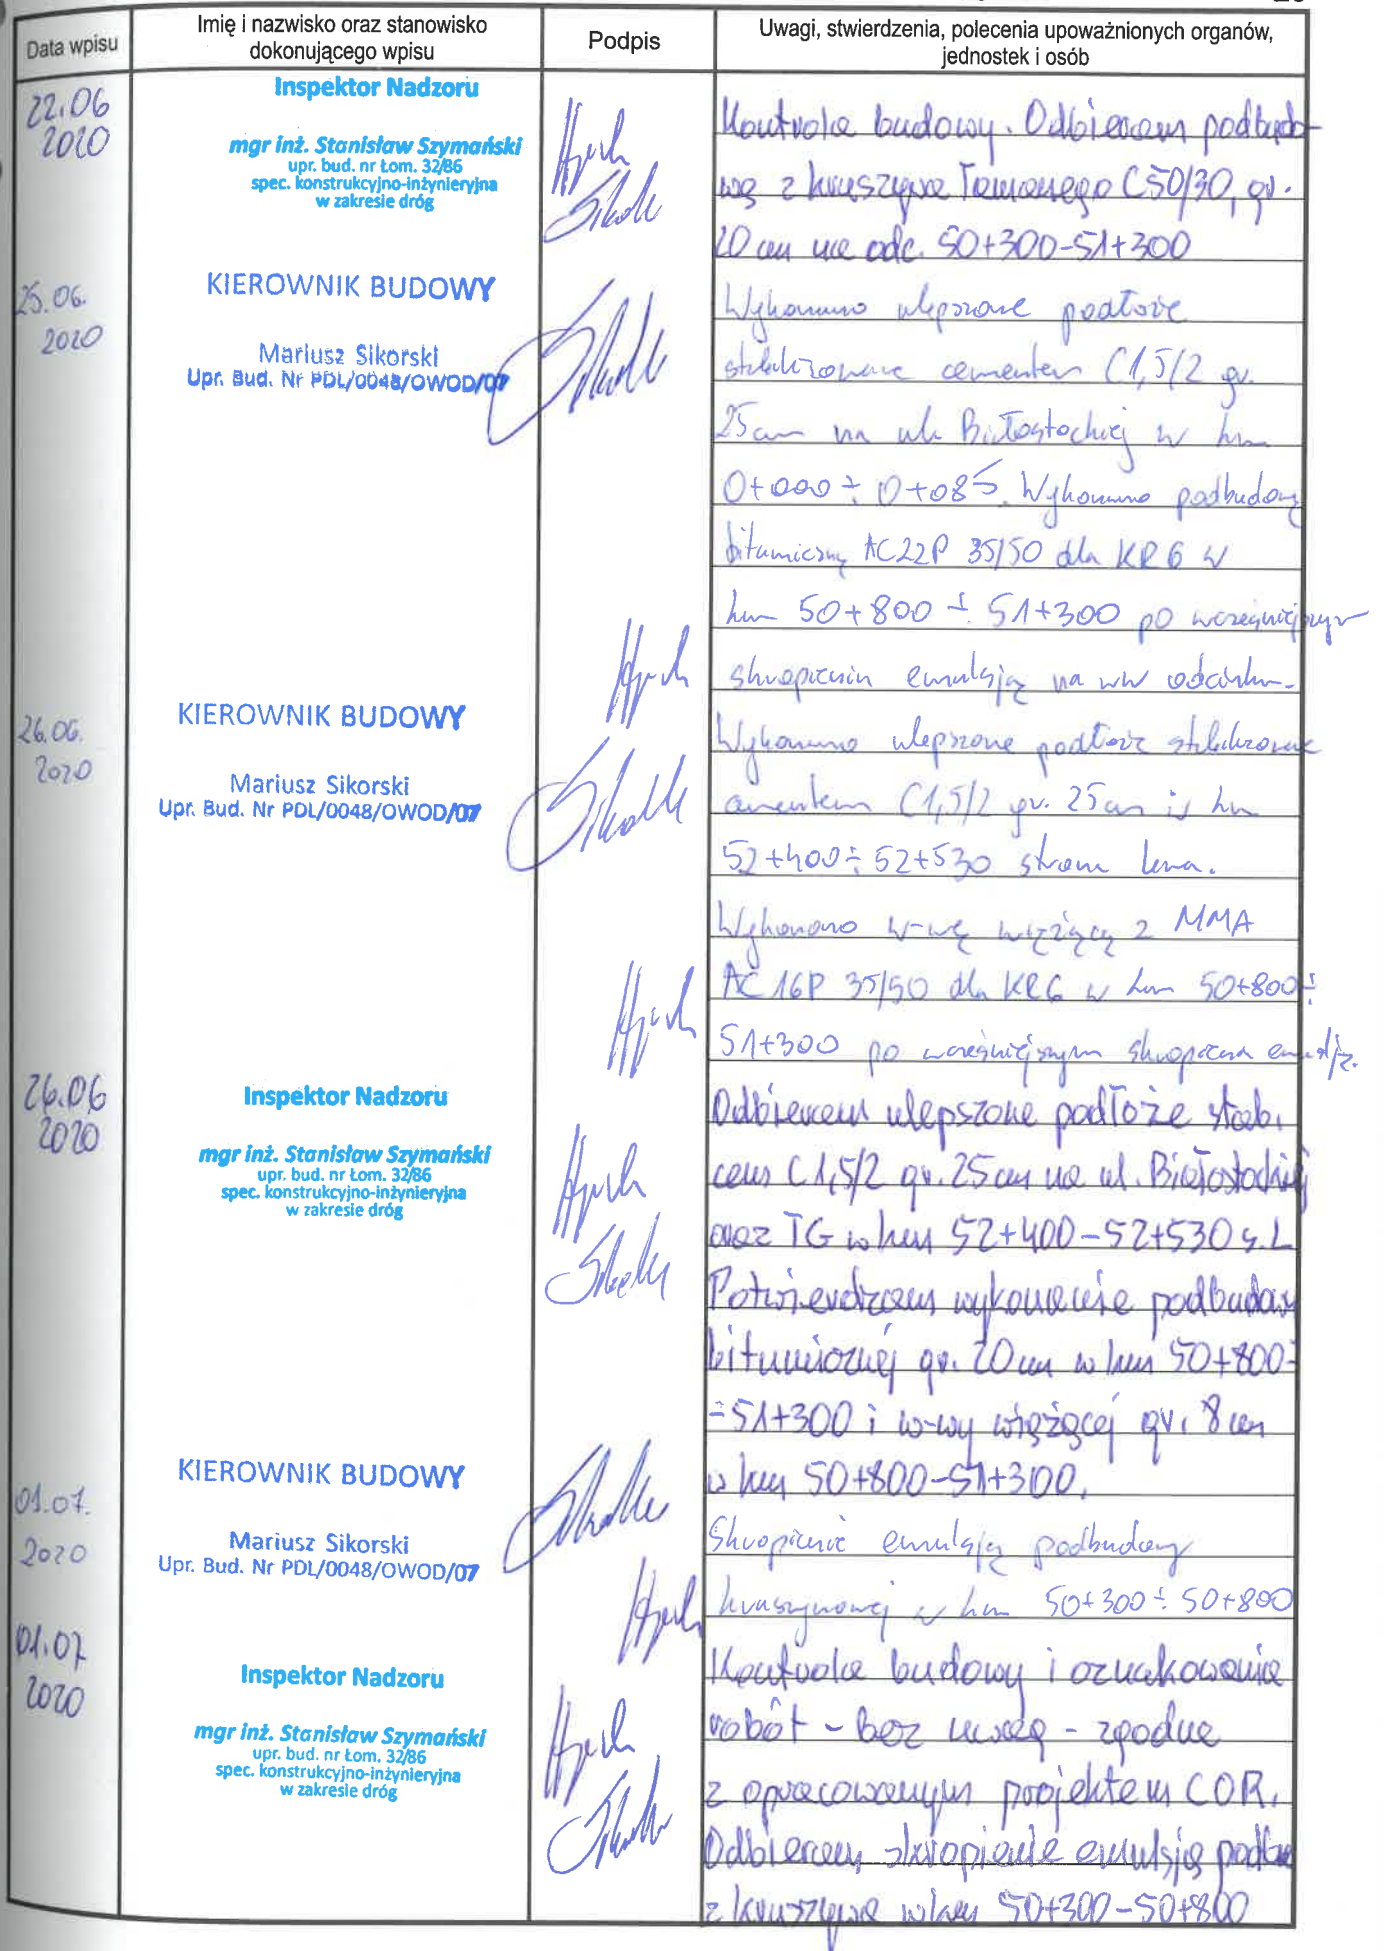 Data wpisu
Imię i nazwisko oraz stanowisko
dokonującego wpisu
Podpis
Uwagi, stwierdzenia, polecenia upoważnionych organów,
jednostek i osób
22.06
2020
Inspektor Nadzoru
mgr inż. Stanisław Szymański
upr. bud. nr Łom. 32/86
spec. konstrukcyjno-inżynieryjna
w zakresie dróg
Kontrola budowy. Odbieram podbudo-
wę z kruszywa łamanego C50/30, gr.
20 cm na odc. 50+300-51+300
25.06.
2020
KIEROWNIK BUDOWY
Mariusz Sikorski
Upr. Bud. Nr PDL/0048/OWOD/07
Wykonano ulepszone podłoże
stabilizowane cementem C1,5/2 gr.
25cm na ul. Białostockiej w km
0+000 ÷ 0+085. Wykonano podbudowę
bitumiczną AC22P 35/50 dla KR6 w
km 50+800 ÷ 51+300 po wcześniejszym
skropieniu emulsją na ww odcinku.
26.06.
2020
KIEROWNIK BUDOWY
Mariusz Sikorski
Upr. Bud. Nr PDL/0048/OWOD/07
Wykonano ulepszone podłoże stabilizowane
cementem C1,5/2 gr. 25cm w km
52+400 ÷ 52+530 strona lewa.
Wykonano w-wę wiążącą z MMA
AC 16P 35/50 dla KR6 w km 50+800 ÷
51+300 po wcześniejszym skropieniu emulsją.
26.06
2020
Inspektor Nadzoru
mgr inż. Stanisław Szymański
upr. bud. nr Łom. 32/86
spec. konstrukcyjno-inżynieryjna
w zakresie dróg
Odbieram ulepszone podłoże stab.
cem C1,5/2 gr. 25 cm na ul. Białostockiej
oraz TG w km 52+400-52+530 s.L
Potwierdzam wykonanie podbudowy
bitumicznej gr. 20 cm w km 50+800÷
÷51+300 i w-wy wiążącej gr. 8 cm
w km 50+800-51+300.
01.07.
2020
KIEROWNIK BUDOWY
Mariusz Sikorski
Upr. Bud. Nr PDL/0048/OWOD/07
Skropienie emulsją podbudowy
kruszynowej w km 50+300 ÷ 50+800
01.07
2020
Inspektor Nadzoru
mgr inż. Stanisław Szymański
upr. bud. nr Łom. 32/86
spec. konstrukcyjno-inżynieryjna
w zakresie dróg
Kontrola budowy i oznakowania
robót - bez uwag - zgodne
z opracowanym projektem COR.
Odbieram skropienie emulsją podbu
z kruszywa w km 50+300-50+800